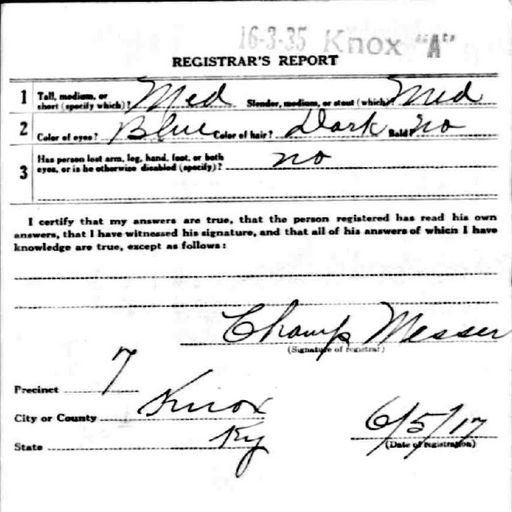 16-3-35 Knox "A"
REGISTRAR'S REPORT
1 Tall, medium, or short (specify which)? Med Slender, medium, or stout (which)? Med
2 Color of eyes? Blue Color of hair? Dark Bald? No
3 Has person lost arm, leg, hand, foot, or both eyes, or is he otherwise disabled (specify)? no
I certify that my answers are true, that the person registered has read his own
answers, that I have witnessed his signature, and that all of his answers of which I have
knowledge are true, except as follows:
Champ Messer
(Signature of registrar)
Precinct 7
City or County Knox
State Ky
6/5/17
(Date of registration)